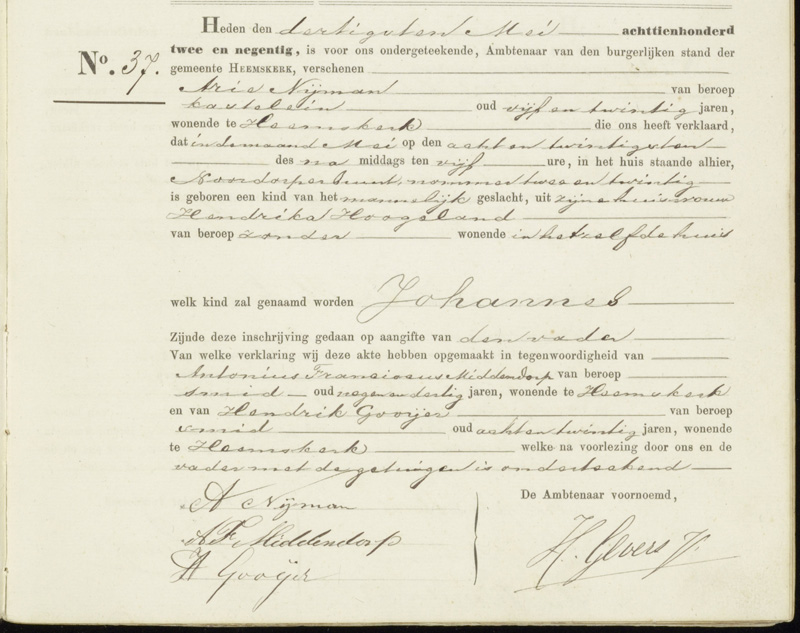 Heden den dertigsten Mei achttienhonderd
No. 37.
twee en negentig, is voor ons ondergeteekende, Ambtenaar van den burgerlijken stand der
gemeente HEEMSKERK, verschenen
Arie Nijman van beroep
kastelein oud vijf en twintig jaren,
wonende te Heemskerk die ons heeft verklaard,
dat in de maand Mei op den acht en twintigsten
des na middags ten vijf ure, in het huis staande alhier,
Noordorperbuurt, nommer twee en twintig
is geboren een kind van het mannelijk geslacht, uit zijne huisvrouw
Hendrika Hoogeland
van beroep zonder wonende in hetzelfde huis
welk kind zal genaamd worden Johannes
Zijnde deze inschrijving gedaan op aangifte van den vader
Van welke verklaring wij deze akte hebben opgemaakt in tegenwoordigheid van
Antonius Franciscus Middendorp van beroep
smid oud negen en dertig jaren, wonende te Heemskerk
en van Hendrik Gooijer van beroep
smid oud acht en twintig jaren, wonende
te Heemskerk welke na voorlezing door ons en de
vader met de getuigen is onderteekend
A Nijman
De Ambtenaar voornoemd,
A F Middendorp
H Gooijer
H. Gevers